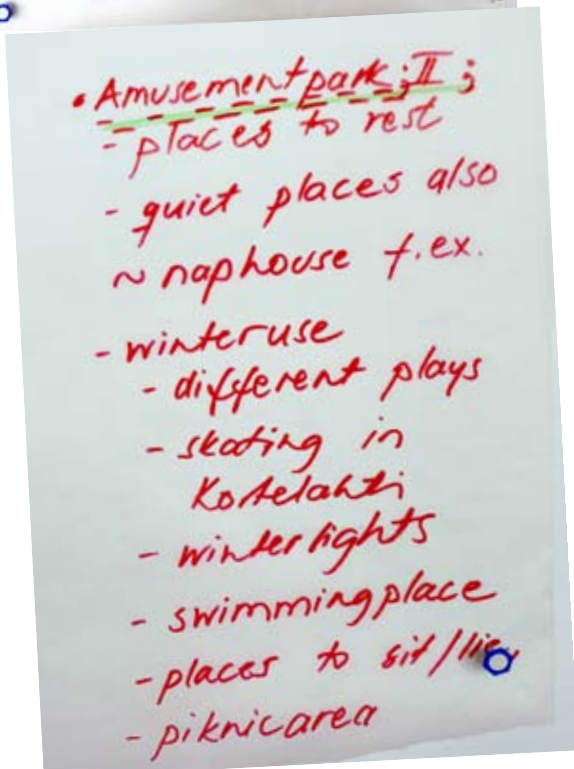 • Amusementpark ; II ;
- places to rest
- quiet places also
~ naphouse f.ex.
- winteruse
- different plays
- skating in
Kostelahti
- winterlights
- swimmingplace
- places to sit/lie
- piknicarea